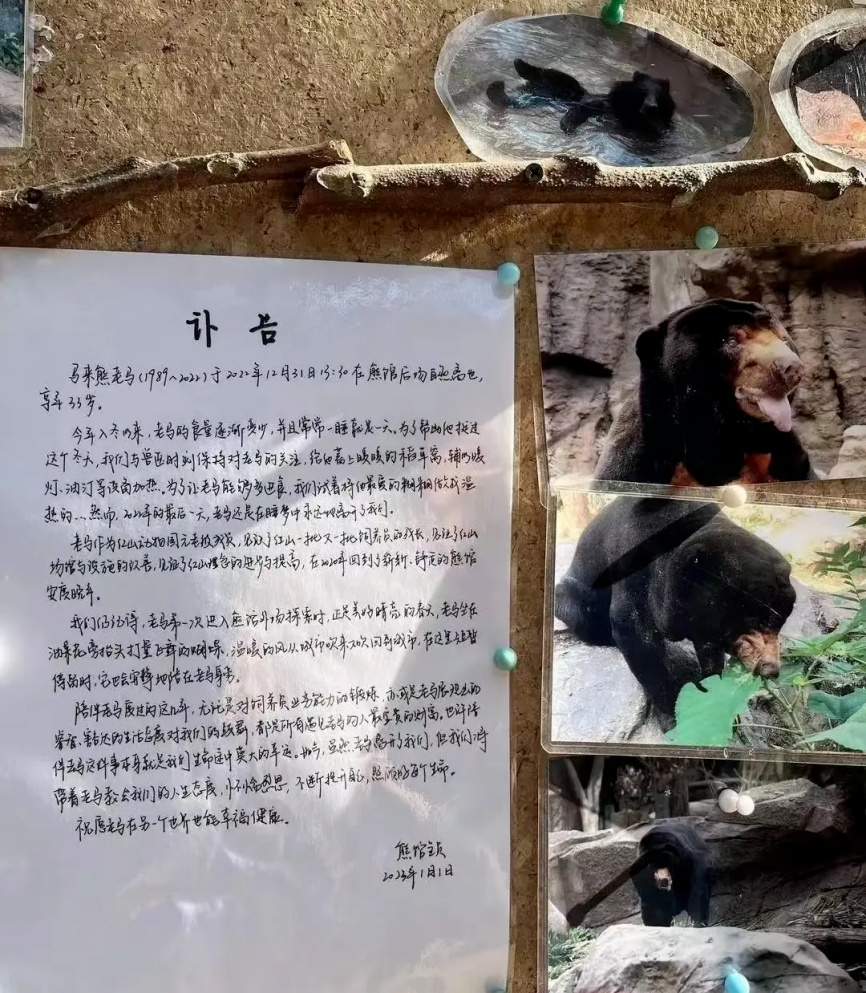 讣 告
马来熊老马(1989~2022)于2022年12月31日15:30在熊馆后场自然离世,
享年33岁。
今年入冬以来,老马的食量逐渐变少,并且常常一睡就是一天。为了帮助他挺过
这个冬天,我们与兽医时刻保持对老马的关注,给他盖上暖暖的稻草窝,辅以暖
灯、油汀等设备加热。为了让老马能够多进食,我们试着将他最爱的粥粥做成温
热的...然而,2022年的最后一天,老马还是在睡梦中永远地离开了我们。
老马作为红山动物园元老级成员,见证了红山一批又一批饲养员的成长,见证了红山
场馆与设施的改善,见证了红山理念的进步与提高,在2020年回到了崭新、舒适的熊馆
安度晚年。
我们仍记得,老马第一次进入熊馆外场探索时,正是美好晴亮的春天,老马坐在
油菜花旁抬头打量飞舞的蝴蝶,温暖的风从城市吹来又吹回到城市,在这里短暂
停留时,它也会安静地陪在老马身旁。
陪伴老马度过的这几年,无论是对饲养员业务能力的锻炼,亦或是老马展现出的
豁达的生活态度对我们的鼓舞,都是所有遇见老马的人最宝贵的财富。也许陪
伴老马这件事本身就是我们生命途中莫大的幸运。如今,虽然老马离开了我们,但我们将
带着老马教会我们的人生态度,怀念感恩,不断提升自己,照顾好每个生命。
祝愿老马在另一个世界也能幸福健康。
熊馆全员
2023年1月1日